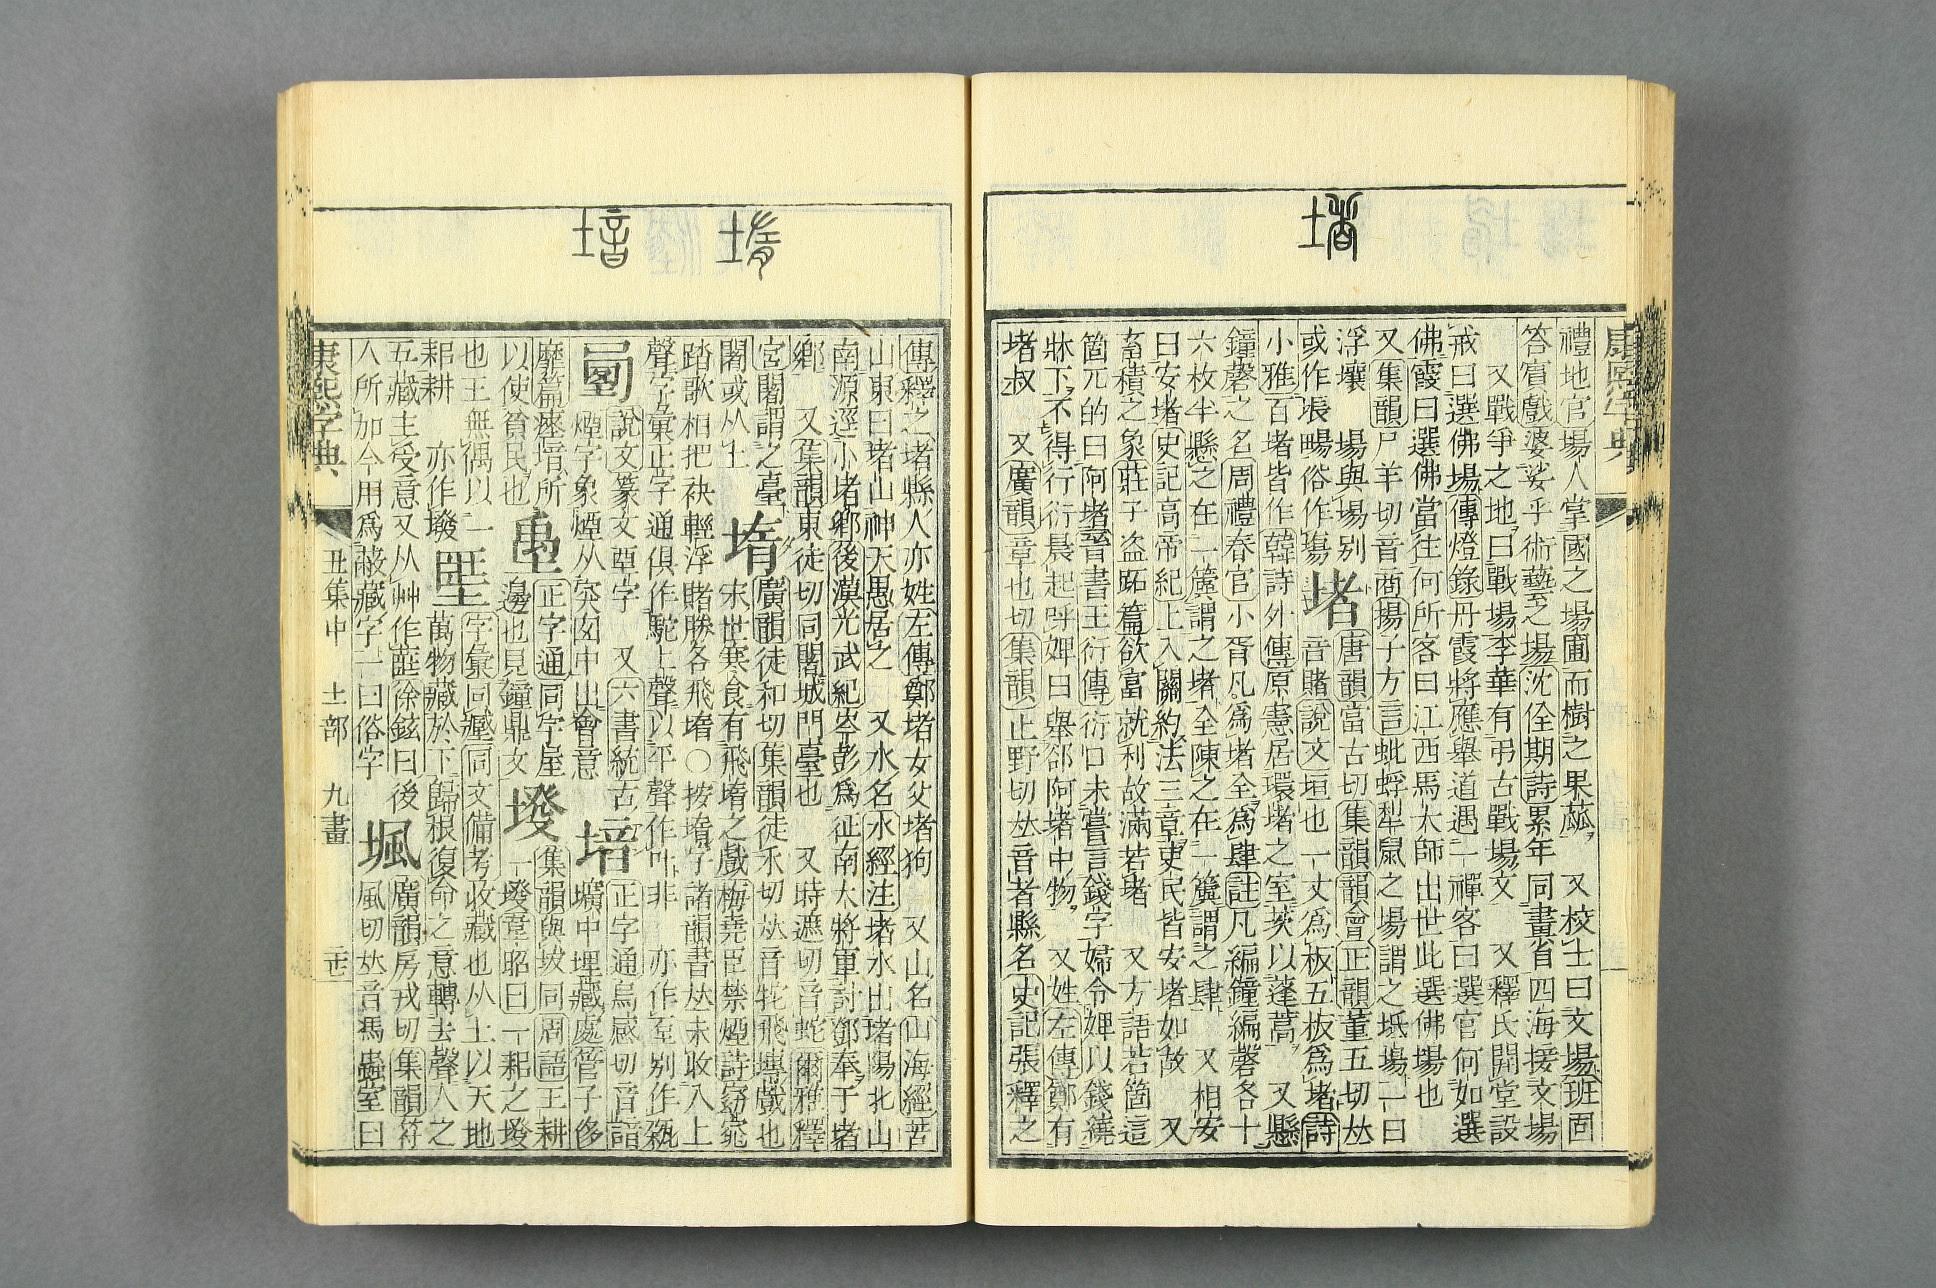 堵
康熙字典
禮地官場人掌國之場圃而樹之果蓏 又校士曰文場班固
答賓戲婆娑乎術藝之場沈佺期詩累年同畫省四海接文場
又戰爭之地曰戰場李華有弔古戰場文 又釋氏開堂設
戒曰選佛場傳燈錄丹霞將應舉道遇一禪客曰選官何如選
佛霞曰選佛當往何所客曰江西馬大師出世此選佛場也
又集韻尸羊切音商揚子方言蚍蜉犁鼠之場謂之坻場一曰
浮壤 場與埸別
或作塲暘俗作塲
堵
唐韻當古切集韻韻會正韻董五切𠀤
音賭說文垣也一丈爲板五板爲堵詩
小雅百堵皆作韓詩外傳原憲居環堵之室茨以蓬蒿 又懸
鐘磬之名周禮春官小胥凡爲堵全爲肆註凡編鐘編磬各十
六枚半懸之在一簴謂之堵全陳之在一簴謂之肆 又相安
曰安堵史記高帝紀上入關約法三章吏民皆安堵如故 又
畜積之象莊子盗跖篇欲富就利故滿若堵 又方語若箇這
箇兀的曰阿堵晉書王衍傳衍口未嘗言錢字婦令婢以錢繞
牀下不得行衍晨起呼婢曰舉郤阿堵中物 又姓左傳鄭有
堵叔 又廣韻章也切集韻止野切𠀤音者縣名史記張釋之
堶
堷
傳釋之堵縣人亦姓左傳鄭堵女父堵狗 又山名山海經苦
山東曰堵山神天愚居之 又水名水經注堵水出堵陽北山
南源逕小堵鄉後漢光武紀岑彭爲征南大將軍討鄧奉于堵
鄉 又集韻東徒切同闍城門臺也 又時遮切音蛇爾雅釋
宮闍謂之臺
闍或从土
堶
廣韻徒和切集韻徒禾切𠀤音牠飛塼戲也
宋世寒食有飛堶之戲梅堯臣禁煙詩窈窕
踏歌相把袂輕浮賭勝各飛堶○按堶字諸韻書𠀤未收入上
聲字彙正字通俱作駝上聲以平聲作叶非 亦作 別作
說文篆文垔字 又六書統古
煙字象煙从突囟中出會意
堷
正字通烏感切音諳
壙中埋藏處管子侈
靡篇瘞堷所
以使貧民也
正字通同 屋
邊也見鐘鼎文
墢
集韻與坺同周語王耕
一墢韋昭曰一耜之墢
也王無偶以一
耜耕 亦作墢
字彙同 同文備考收藏也从土以天地
萬物藏於下歸根復命之意轉去聲人之
五藏主受意又从艸作 徐鉉曰後
人所加今用爲 藏字一曰俗字
堸
廣韻房戎切集韻符
風切𠀤音馮蟲室曰
康熙字典
丑集中 土部 九畫